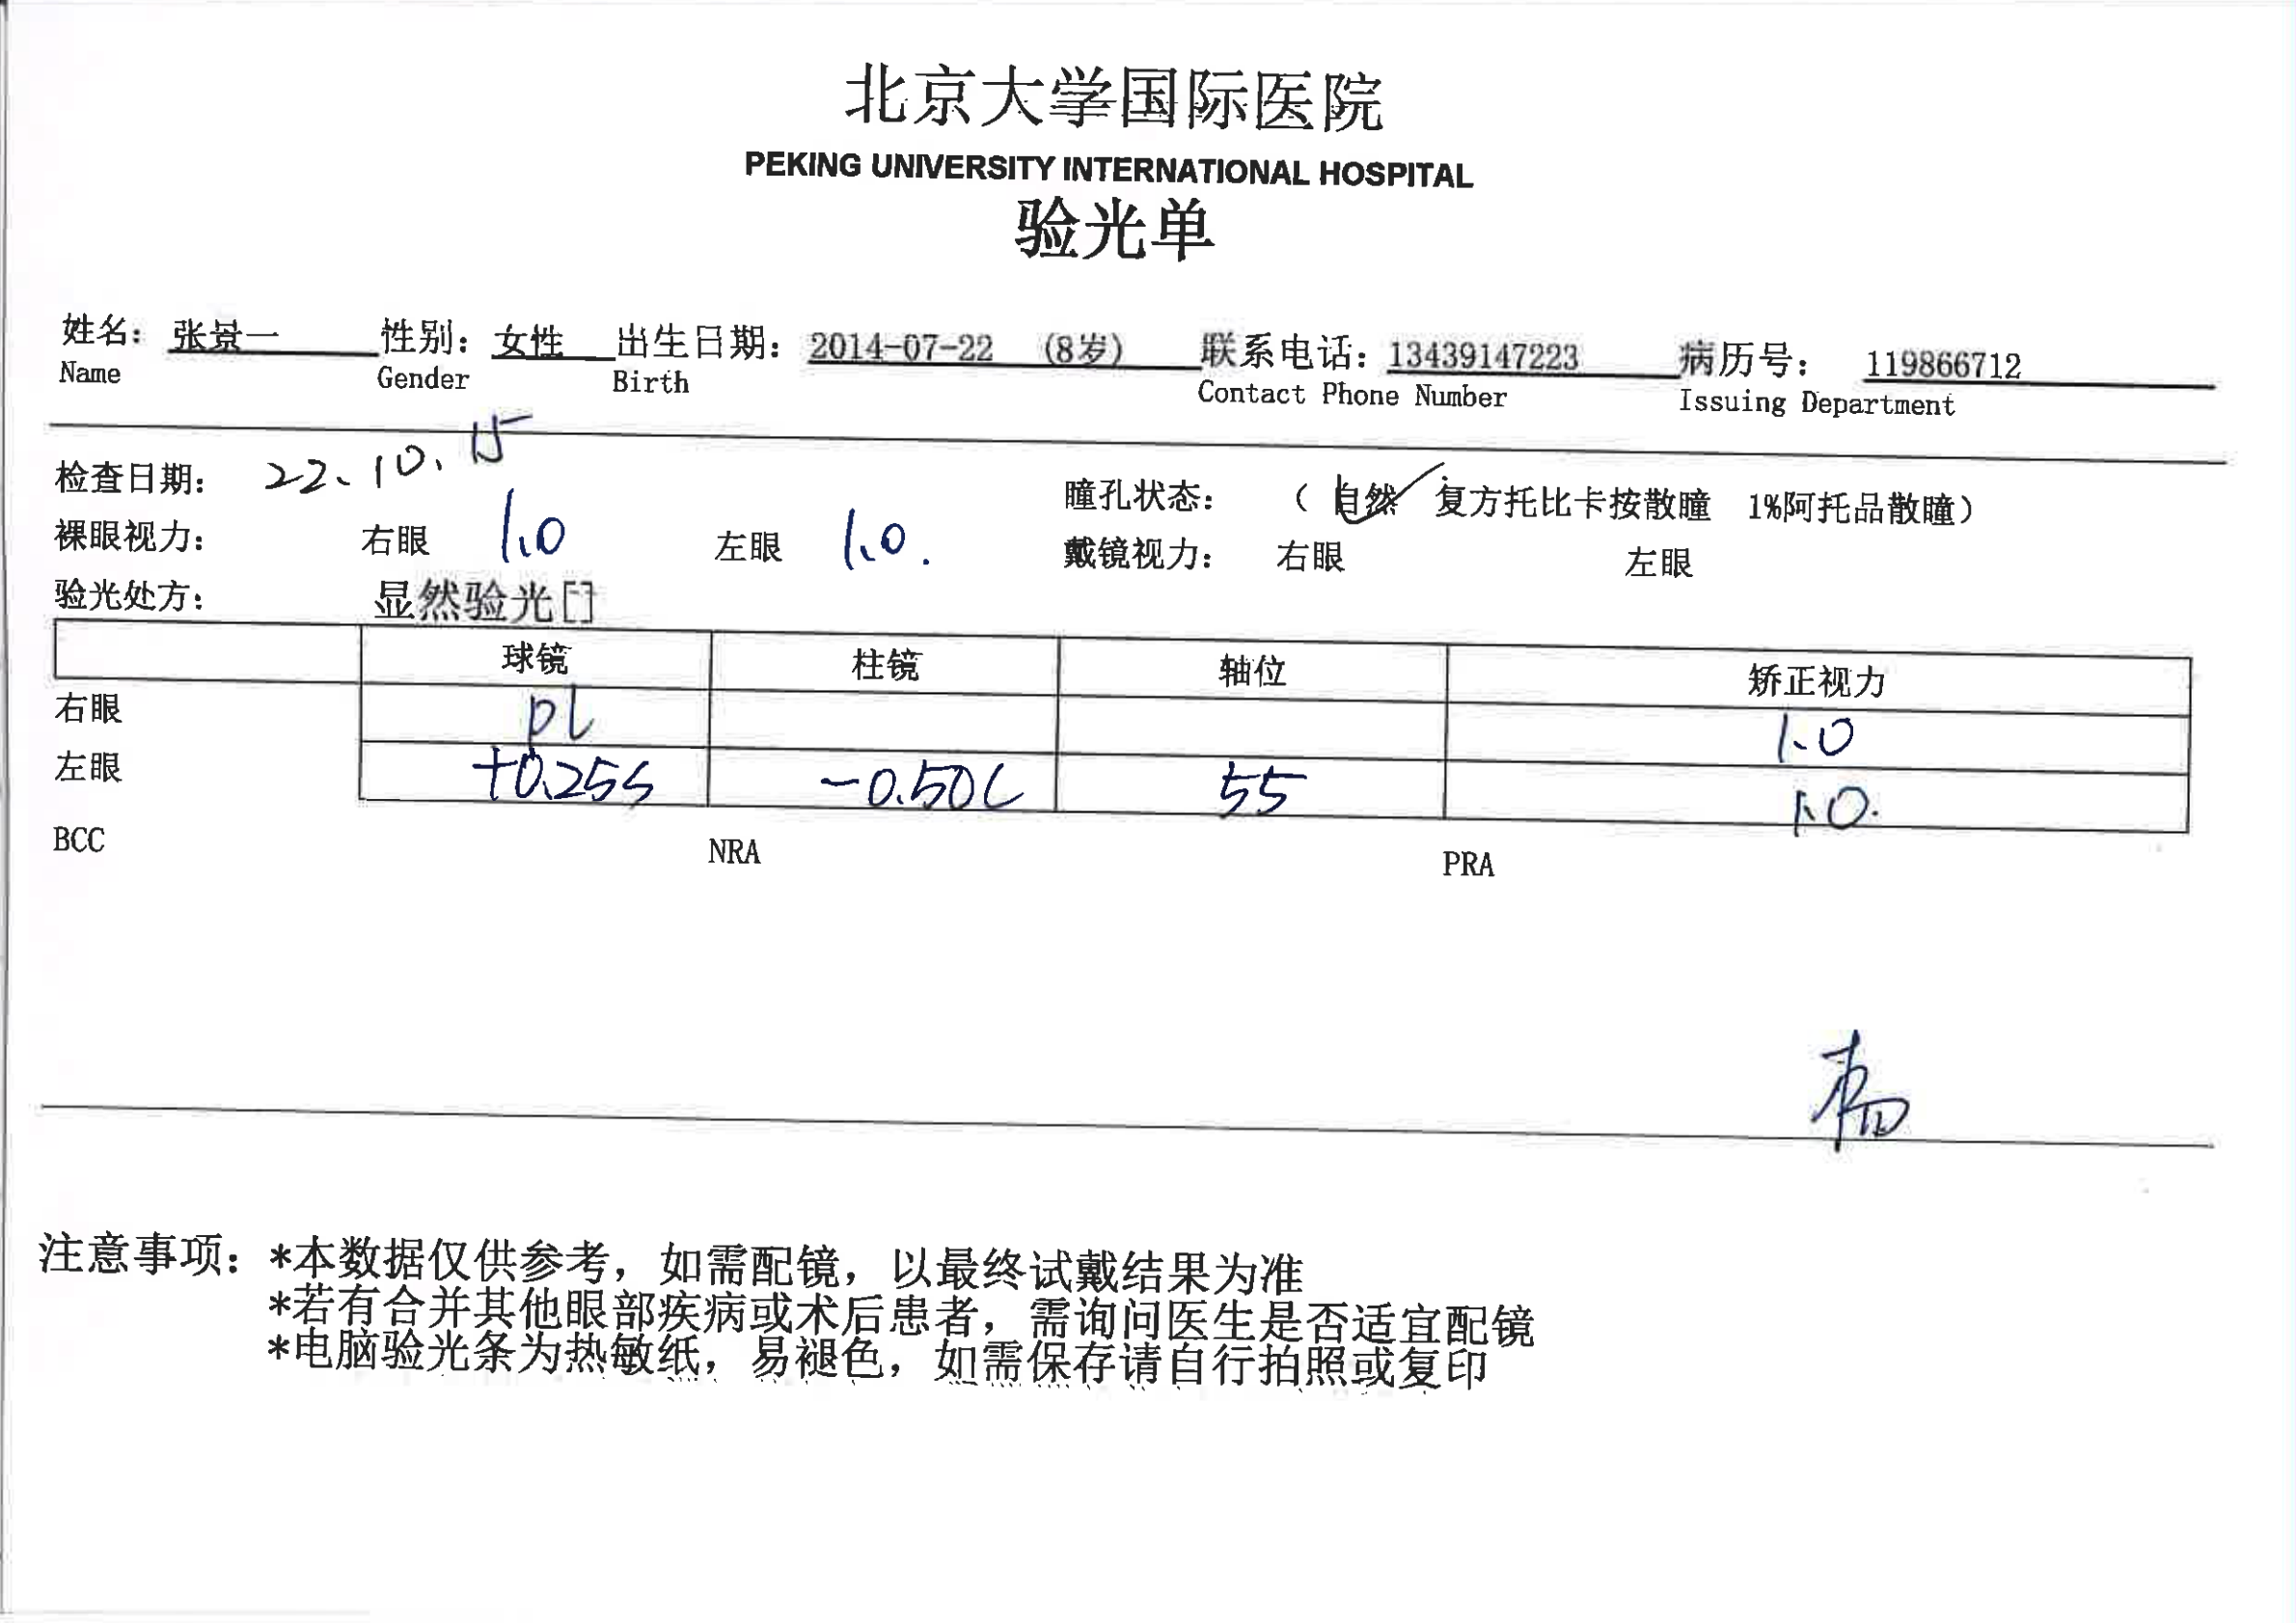 北京大学国际医院
PEKING UNIVERSITY INTERNATIONAL HOSPITAL
验光单
姓名: 张景一 性别: 女性 出生日期: 2014-07-22 (8岁) 联系电话: 13439147223 病历号: 119866712
Name Gender Birth Contact Phone Number Issuing Department
检查日期: 22、10、15 瞳孔状态: ( 自然✓ 复方托比卡按散瞳 1%阿托品散瞳)
裸眼视力: 右眼 1.0 左眼 1.0. 戴镜视力: 右眼 左眼
验光处方: 显然验光[]
球镜 柱镜 轴位 矫正视力
右眼 pl 1.0
左眼 +0.25S -0.50C 55 1.0.
BCC NRA PRA
注意事项: *本数据仅供参考, 如需配镜, 以最终试戴结果为准
*若有合并其他眼部疾病或术后患者, 需询问医生是否适宜配镜
*电脑验光条为热敏纸, 易褪色, 如需保存请自行拍照或复印